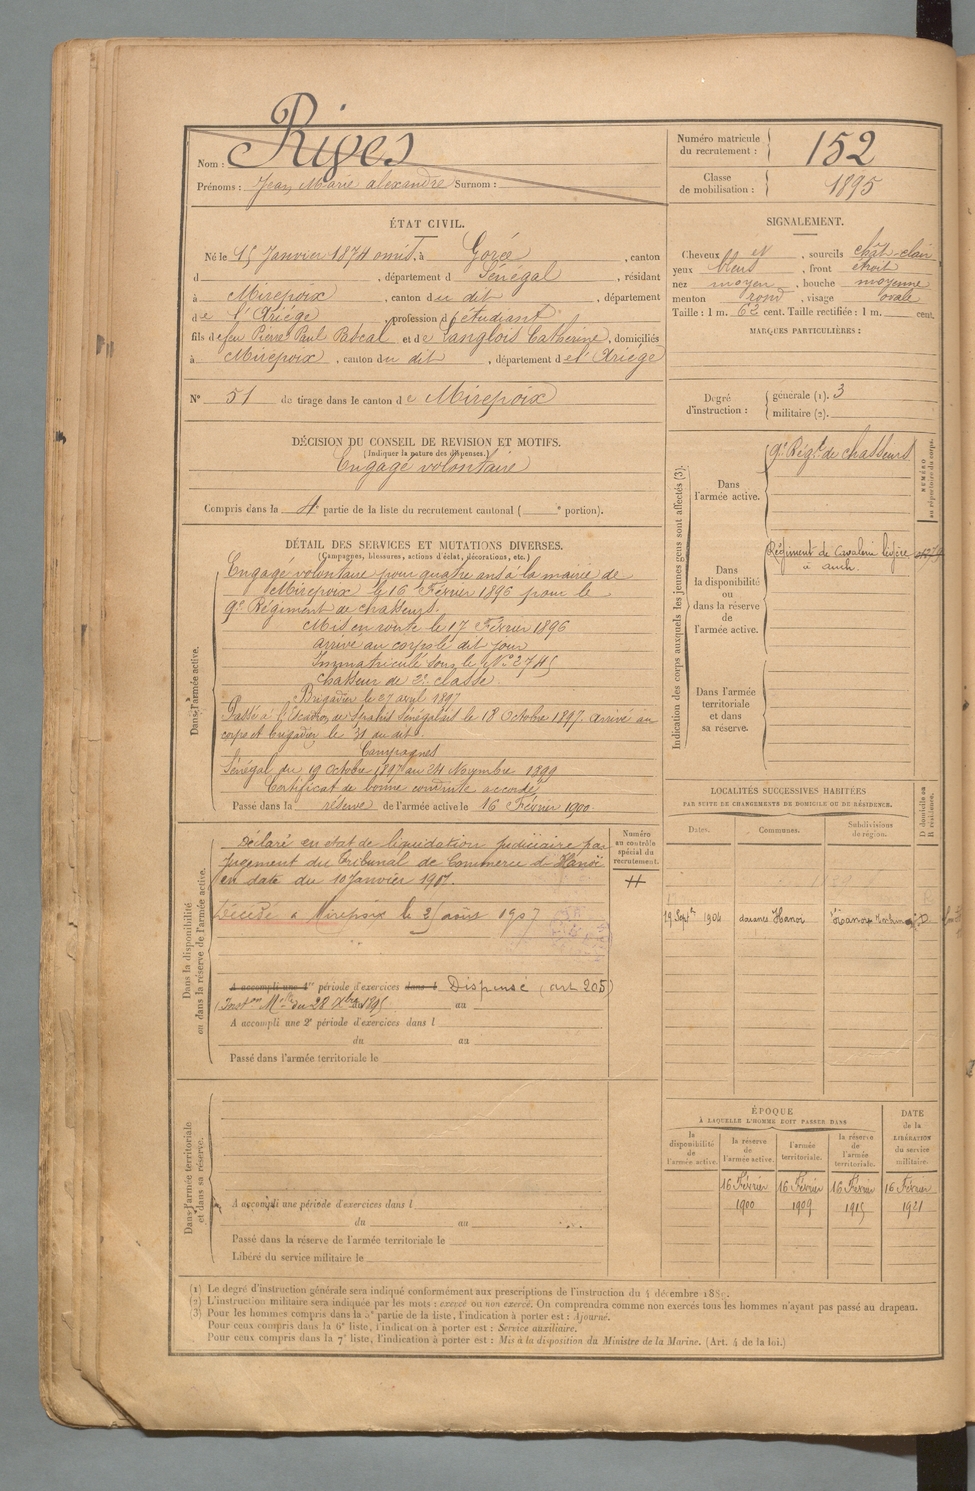 Nom : Rives
Prénoms : Jean Marie alexandre Surnom :
Numéro matricule du recrutement : 152
Classe de mobilisation : 1895
ÉTAT CIVIL.
Né le 15 Janvier 1874 omis, à Gorée, canton
d , département d Sénégal, résidant
à Mirepoix, canton du dit, département
de l'Ariége, profession d étudiant
fils de feu Pierre Paul Pascal et de Langlois Catherine, domiciliés
à Mirepoix, canton du dit, département de l'Ariége
N° 51 de tirage dans le canton de Mirepoix
DÉCISION DU CONSEIL DE REVISION ET MOTIFS.
(Indiquer la nature des dispenses.)
Engagé volontaire
Compris dans la 4e partie de la liste du recrutement cantonal ( e portion).
DÉTAIL DES SERVICES ET MUTATIONS DIVERSES.
(Campagnes, blessures, actions d'éclat, décorations, etc.)
Dans l'armée active.
Engagé volontaire pour quatre ans à la mairie de
Mirepoix le 16 Février 1896 pour le
9e Régiment de chasseurs.
Mis en route le 17 Février 1896
arrivé au corps le dit jour
Immatriculé sous le N° 2745
chasseur de 2e classe.
Brigadier le 27 avril 1897
Passé à l'Escadron de Spahis Sénégalais le 18 Octobre 1897. arrivé au
corps et brigadier le 31 du dit.
Campagnes
Sénégal du 19 Octobre 1897 au 24 Novembre 1899
Certificat de bonne conduite accordé
Passé dans la réserve de l'armée active le 16 Février 1900.
Dans la disponibilité ou dans la réserve de l'armée active.
Déclaré en état de liquidation judiciaire par
jugement du tribunal de Commerce d'Hanoï
en date du 10 Janvier 1907.
Décédé à Mirepoix le 25 août 1907
A accompli une 1re période d'exercices dans l Dispensé (art 205)
Inston Mlle du 28 Xbre 1895 au
A accompli une 2e période d'exercices dans l
du au
Passé dans l'armée territoriale le
Numéro au contrôle spécial du recrutement.
Dans l'armée territoriale et dans sa réserve.
A accompli une période d'exercices dans l
du au
Passé dans la réserve de l'armée territoriale le
Libéré du service militaire le
SIGNALEMENT.
Cheveux et, sourcils chât-clair
yeux bleus, front étroit
nez moyen, bouche moyenne
menton rond, visage ovale
Taille : 1 m. 62 cent. Taille rectifiée : 1 m. cent.
MARQUES PARTICULIÈRES :
Degré d'instruction :
générale (1). 3
militaire (2).
Indication des corps auxquels les jeunes gens sont affectés (3).
Dans l'armée active.
9e Régt de chasseurs
NUMÉRO au répertoire du corps.
Dans la disponibilité ou dans la réserve de l'armée active.
Régiment de Cavalerie légère
à Auch.
Dans l'armée territoriale et dans sa réserve.
LOCALITÉS SUCCESSIVES HABITÉES
PAR SUITE DE CHANGEMENTS DE DOMICILE OU DE RÉSIDENCE.
Dates. Communes. Subdivisions de région. D domicile ou R résidence.
19 Septe 1904 douanes Hanoï Hanoï D
ÉPOQUE
À LAQUELLE L'HOMME DOIT PASSER DANS
la disponibilité de l'armée active. la réserve de l'armée active. l'armée territoriale. la réserve de l'armée territoriale.
DATE de la LIBÉRATION du service militaire.
16 Février 16 Février 16 Février 16 Février
1900 1909 1915 1921
(1) Le degré d'instruction générale sera indiqué conformément aux prescriptions de l'instruction du 4 décembre 1889.
(2) L'instruction militaire sera indiquée par les mots : exercé ou non exercé. On comprendra comme non exercés tous les hommes n'ayant pas passé au drapeau.
(3) Pour les hommes compris dans la 5e partie de la liste, l'indication à porter est : Ajourné.
Pour ceux compris dans la 6e liste, l'indication à porter est : Service auxiliaire.
Pour ceux compris dans la 7e liste, l'indication à porter est : Mis à la disposition du Ministre de la Marine. (Art. 4 de la loi.)